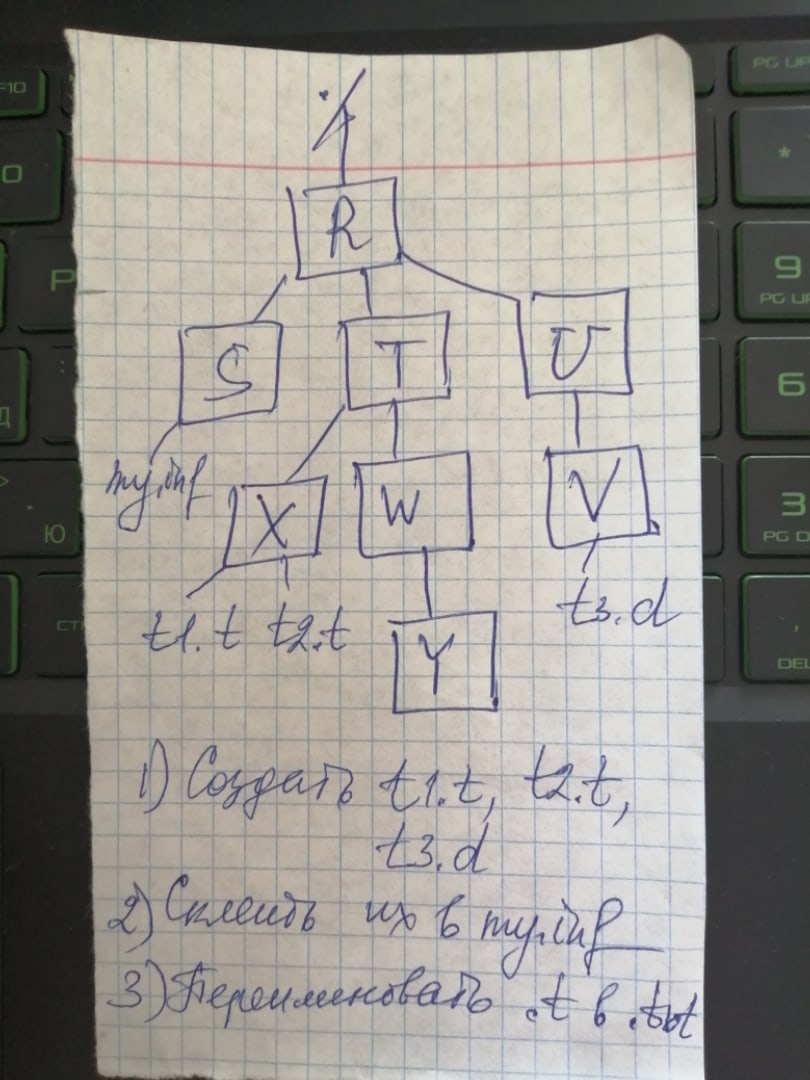 R
S
T
U
my.inf
X
W
V
t1.t
t2.t
t3.d
Y
1) Создать t1.t, t2.t,
t3.d
2) Склеить их в my.inf
3) Переименовать .t в .txt
F10
PG UP
*
9
PG UP
6
3
PG D
Ю
DEL